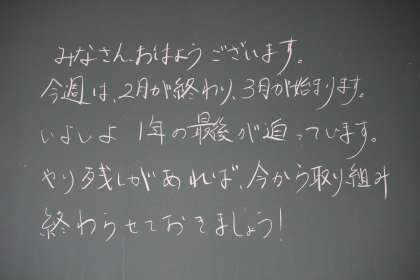 みなさん、おはようございます。
今週は、2月が終わり、3月が始まります。
いよいよ1年の最後が迫っています。
やり残しがあれば、今から取り組み
終わらせておきましょう!